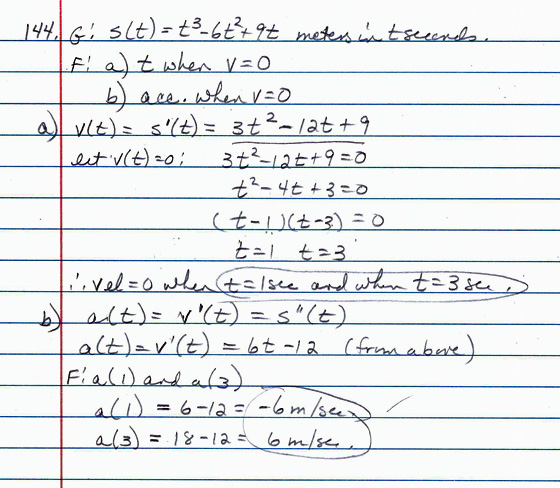 144. G: s(t) = t³-6t²+9t meters in t seconds.
F: a) t when v=0
b) acc. when v=0
a) v(t) = s'(t) = 3t²-12t+9
let v(t)=0: 3t²-12t+9=0
t²-4t+3=0
(t-1)(t-3) = 0
t=1 t=3
∴ vel=0 when t=1sec and when t=3 sec.
b) a(t) = v'(t) = s"(t)
a(t)=v'(t) = 6t-12 (from above)
F: a(1) and a(3)
a(1) = 6-12 = -6 m/sec ✓
a(3) = 18-12 = 6 m/sec.